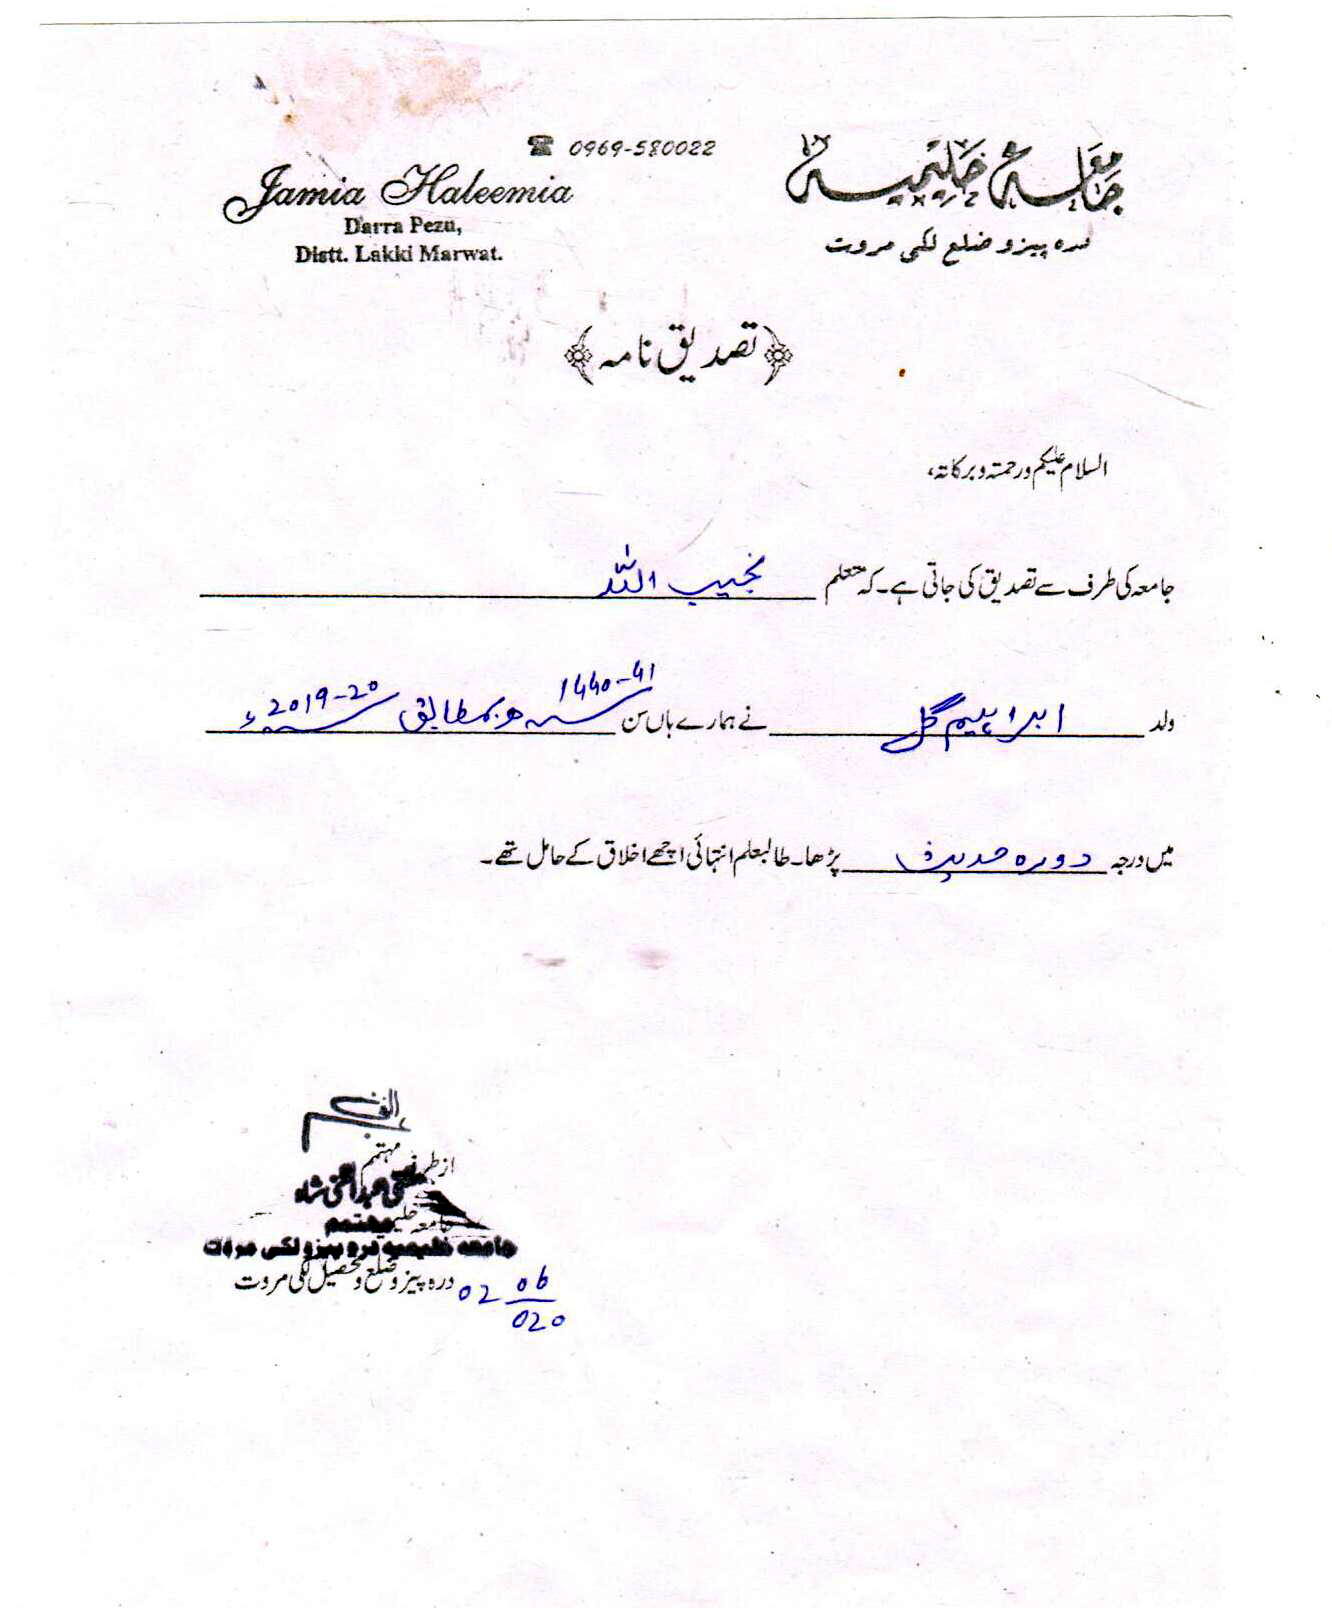 ☎ 0969-580022
Jamia Haleemia
Darra Pezu,
Distt. Lakki Marwat.
جامعہ حلیمیہ
درہ پیزو ضلع لکی مروت
﴿تصدیق نامہ﴾
السلام علیکم ورحمتہ وبرکاتہ،
جامعہ کی طرف سے تصدیق کی جاتی ہے۔ کہ متعلم نجیب اللہ
ولد ابراہیم گل نے ہمارے ہاں سن 1440-41ھ بمطابق 2019-20ء
میں درجہ دورہ حدیث پڑھا۔ طالبعلم انتہائی اچھے اخلاق کے حامل تھے۔
از طرف مہتمم
مفتی عبدالغنی شاہ
جامعہ حلیمیہ
مہتمم
جامعہ حلیمیہ درہ پیزو لکی مروت
درہ پیزو ضلع و تحصیل لکی مروت
02 06
020